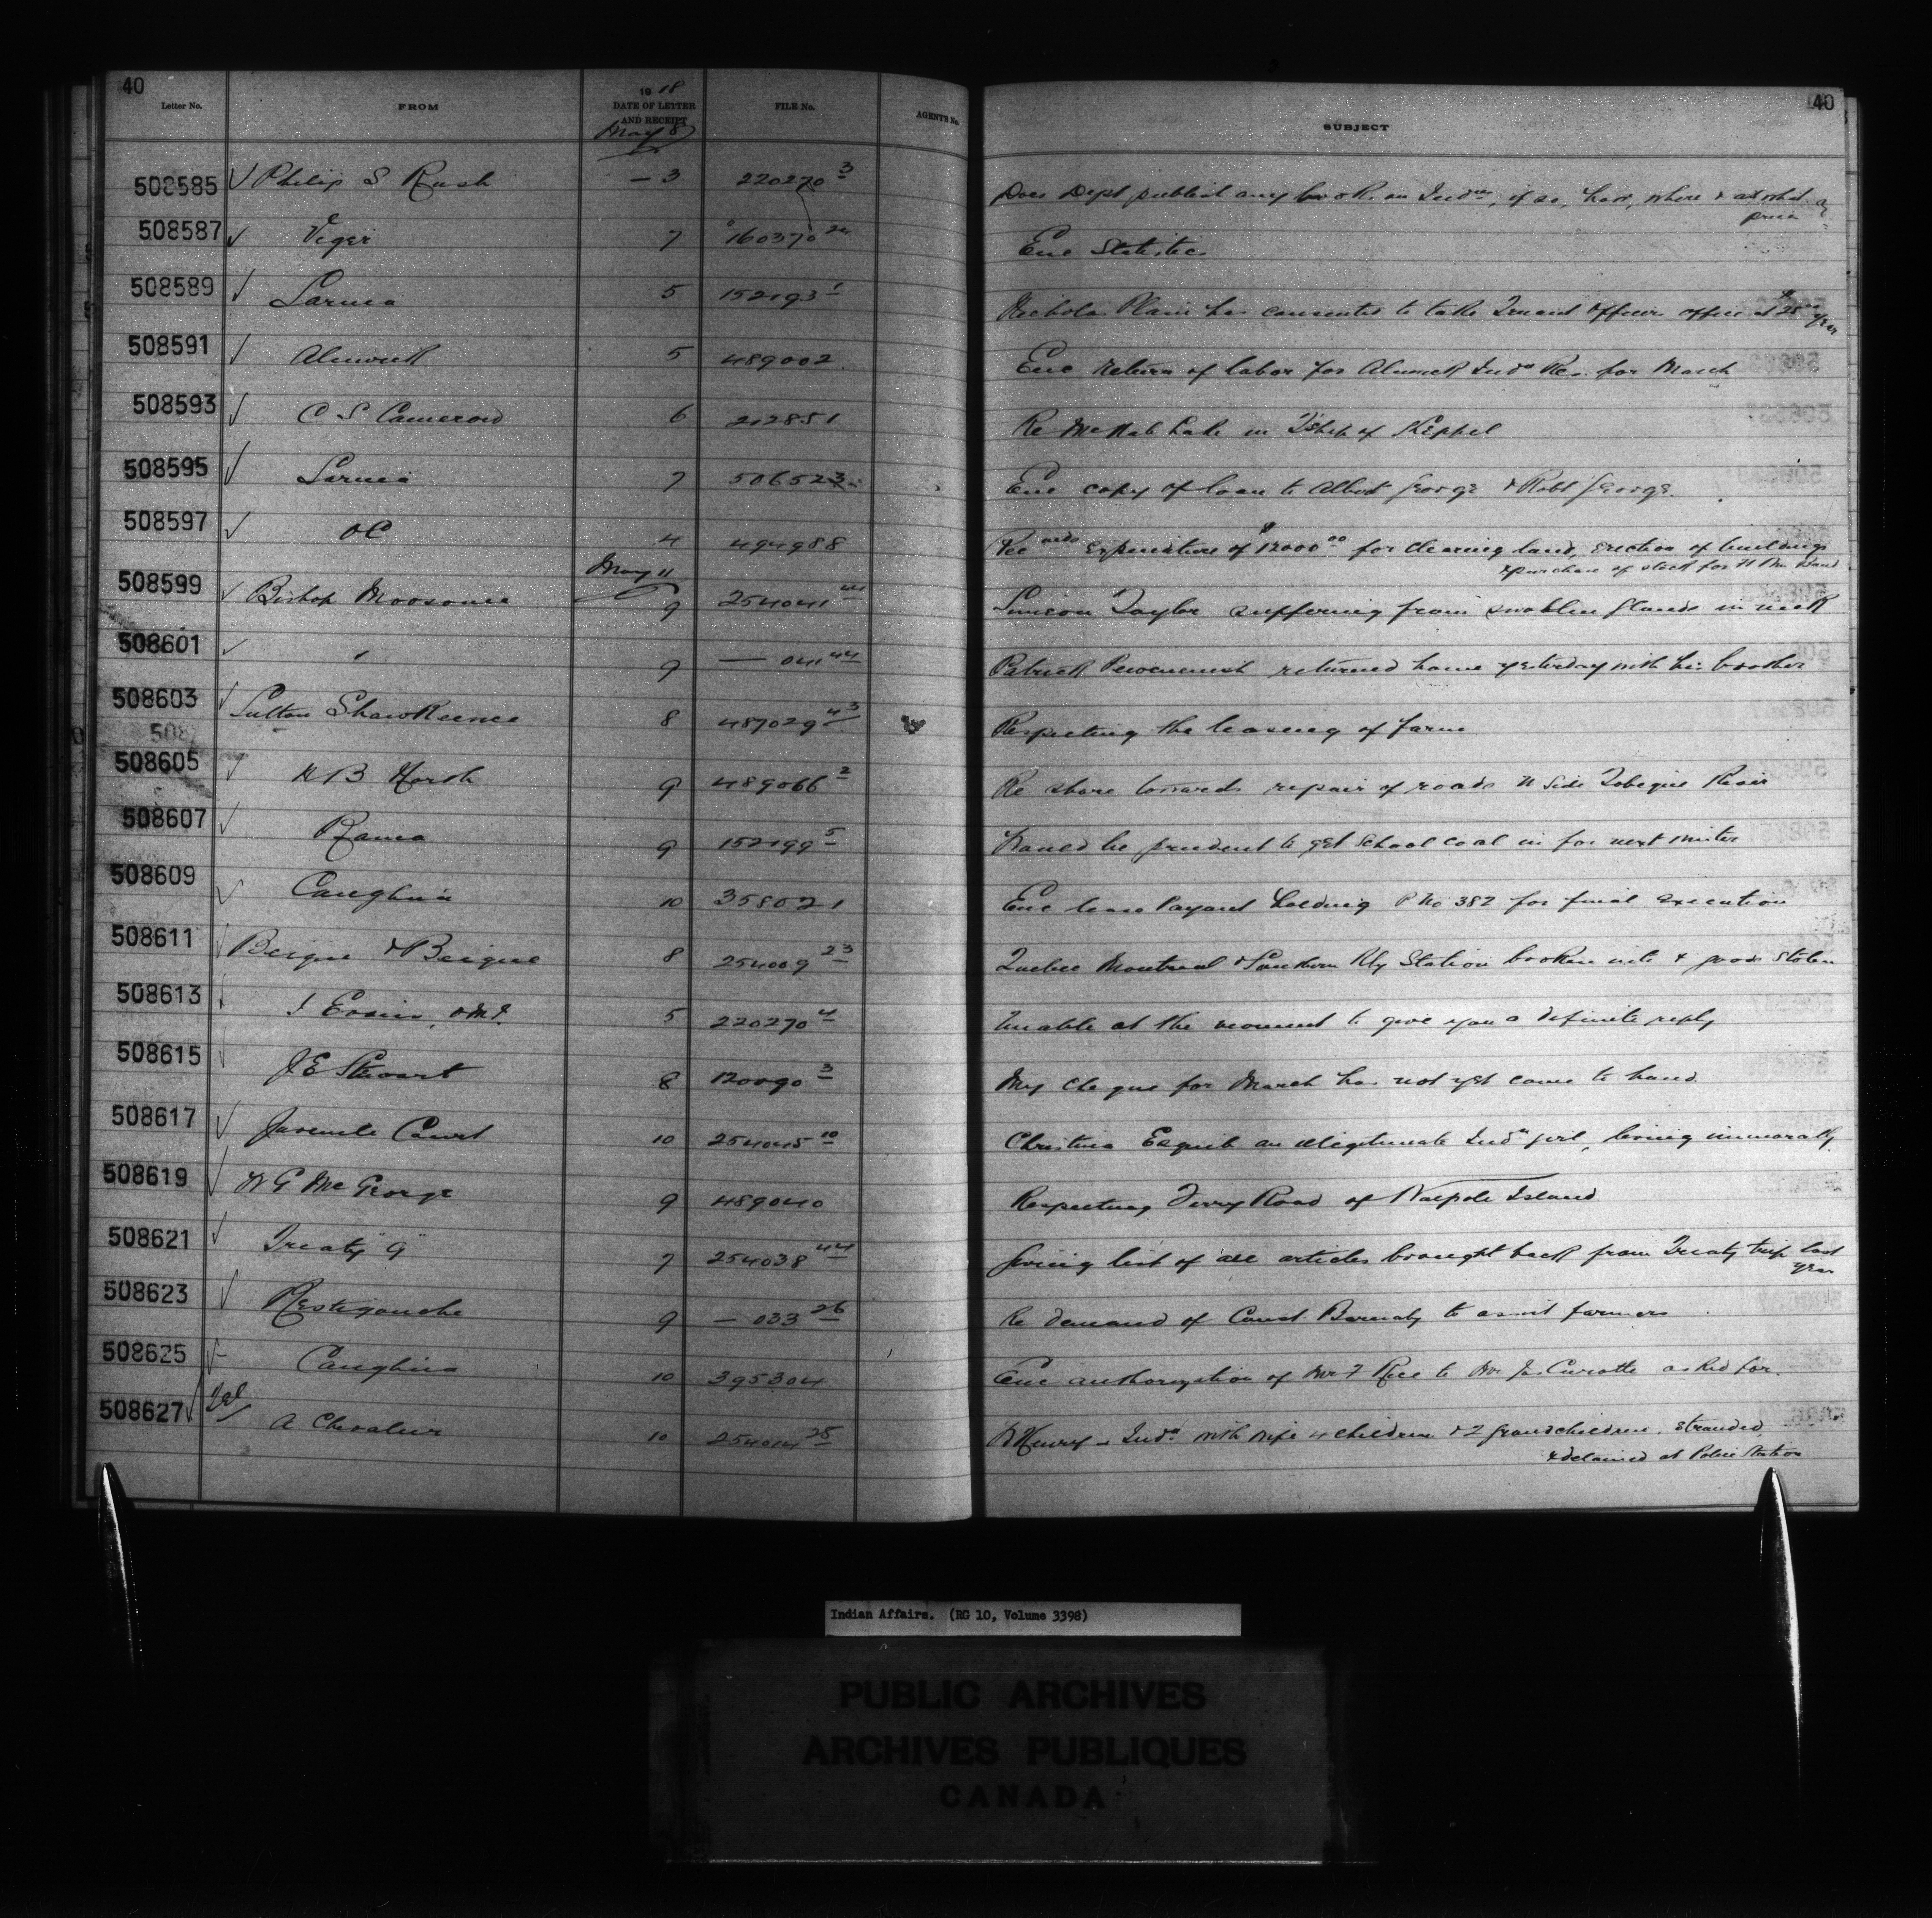 40
Letter No. FROM 1918 DATE OF LETTER AND RECEIPT FILE No. AGENT'S No. SUBJECT 40
May 8
508585 ✓ Philip S Rush — 3 220270 3 Does Dept publish any book on Inds, if so, how, where & at what price
508587 ✓ Viger 7 160370 Enc Statistics
508589 ✓ Sarnia 5 152193 1 Nicholas Plain has consented to take Truant Officers office at $25 00 year
508591 ✓ Alnwick 5 489002 Enc return of labor for Alnwick Indn Res. for March
508593 ✓ C S Cameron 6 212851 Re McNab Lake in T'ship of Keppel
508595 ✓ Sarnia 7 506523 Enc copy of loan to Albert George & Robt George.
508597 ✓ OC 4 494988 Rec Expenditure of $12000 00 for clearing land, erection of buildings
& purchase of stock for Band
May 11
508599 ✓ Bishop Moosonee 9 254041 44 Simeon Taylor suffering from swollen glands in neck
508601 ✓ " 9 — 041 44 Patrick returned home yesterday with his brother
508603 ✓ Sutton Shawkeence 8 487029 43 Respecting the leasing of farm
508605 ✓ H B North 9 489066 2 Re share towards repair of roads N Side Tobique River
508607 ✓ Rama 9 152199 5 Would be prudent to get School coal in for next winter
508609 ✓ Caughna 10 358021 Enc lease Payant holding P No 382 for final execution
508611 Beique & Beique 8 254009 23 Quebec Montreal & Southern Rly Station broken into & goods stolen
508613 5 220270 4 Unable at the moment to give you a definite reply
508615 J E Stewart 8 120090 3 My cheque for March has not yet come to hand.
508617 ✓ Juvenile Court 10 254045 10 Christina Esquib an illegitimate Indn girl, living immorally.
508619 ✓ W G McGeorge 9 489040 Respecting Ferry Road of Walpole Island
508621 ✓ Treaty "9" 7 254038 44 Giving list of all articles brought back from Treaty trip last year
508623 ✓ Restigouche 9 — 033 26 Re demand of Const. Barnaby to assist farmers
508625 ✓ Caughna 10 395304 Enc authorization of Mr F Rice to Mr Jas Curotte asked for.
508627 ✓ A Chevalier 10 254014 25 B Henry - Indn with wife 4 children & 2 grandchildren. Stranded
& detained at Police Station
Indian Affairs. (RG 10, Volume 3398)
PUBLIC ARCHIVES
ARCHIVES PUBLIQUES
CANADA